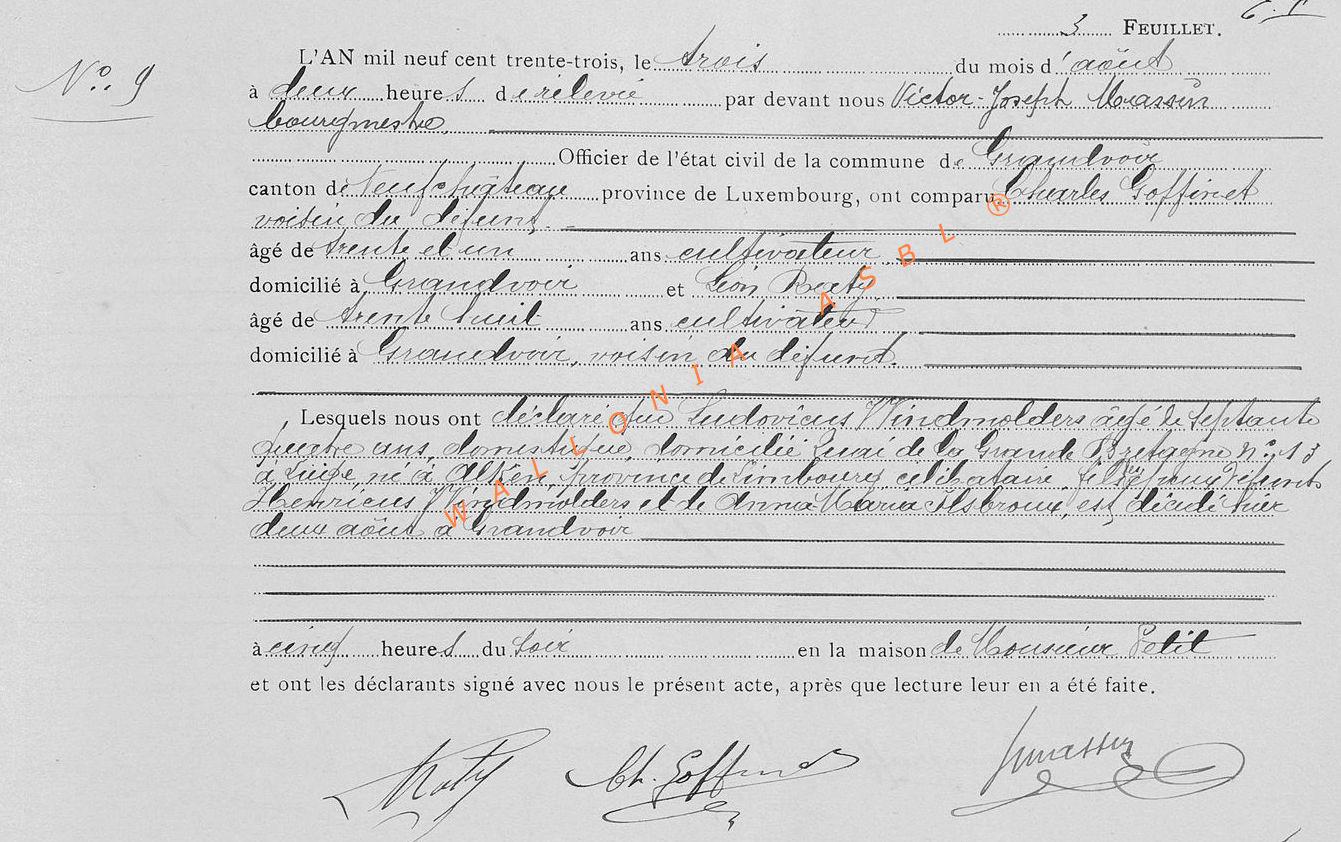 3 FEUILLET.
N° 9
L'AN mil neuf cent trente-trois, le trois du mois d'août
à deux heures de relevée par devant nous Victor-Joseph Massin
bourgmestre
Officier de l'état civil de la commune de Grandvoir
canton de Neufchâteau province de Luxembourg, ont comparu Charles Goffinet
voisin du défunt.
âgé de trente et un ans cultivateur
domicilié à Grandvoir et Léon Roty
âgé de trente huit ans cultivateur
domicilié à Grandvoir, voisin du défunt.
Lesquels nous ont déclaré que Ludovicus Windmolders âgé de septante
quatre ans, domestique, domicilié Quai de la Grande Bretagne n° 13
à Liège, né à Alken, province de Limbourg célibataire, fils de feux défunts
Henricus Windmolders et de Anna Maria Ilsbroux, est décédé hier
deux août à Grandvoir
à cinq heures du soir en la maison de Monsieur Petit
et ont les déclarants signé avec nous le présent acte, après que lecture leur en a été faite.
Roty Ch. Goffinet Jmassin
WALLONIA ASBL ®